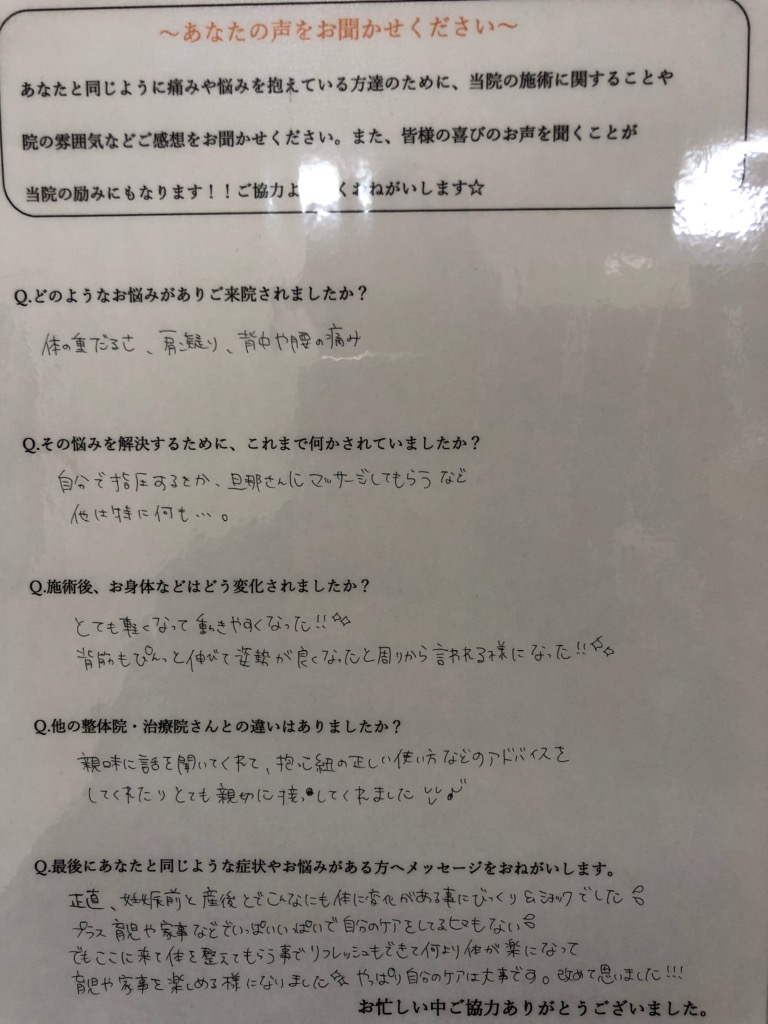 ～あなたの声をお聞かせください～
あなたと同じように痛みや悩みを抱えている方達のために、当院の施術に関することや
院の雰囲気などご感想をお聞かせください。また、皆様の喜びのお声を聞くことが
当院の励みにもなります！！ご協力よ くおねがいします☆
Q.どのようなお悩みがありご来院されましたか？
体の重だるさ、肩凝り、背中や腰の痛み
Q.その悩みを解決するために、これまで何かされていましたか？
自分で指圧するとか、旦那さんにマッサージしてもらうなど
他は特に何も…。
Q.施術後、お身体などはどう変化されましたか？
とても軽くなって動きやすくなった!!☆☆
背筋もぴんっと伸びて姿勢が良くなったと周りから言われる様になった!!☆☆
Q.他の整体院・治療院さんとの違いはありましたか？
親味に話を聞いてくれて、抱っこ紐の正しい使い方などのアドバイスを
してくれたりとても親切に接してくれました♪
Q.最後にあなたと同じような症状やお悩みがある方へメッセージをおねがいします。
正直、妊娠前と産後とでこんなにも体に変化がある事にびっくり&ショックでした
プラス育児や家事などでいっぱいいっぱいで自分のケアをしてるヒマもない
でもここに来て体を整えてもらう事でリフレッシュもできて何より体が楽になって
育児や家事を楽しめる様になりました☆ やっぱり自分のケアは大事です。改めて思いました!!!
お忙しい中ご協力ありがとうございました。